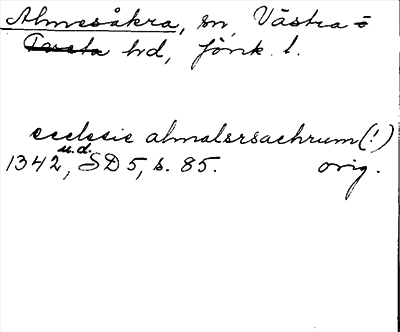 Almesåkra, sn, Västra hd, Jönk. l.
ecclesie almalsrsachrum (!)
u.d.
1342, SD 5, s. 85. orig.